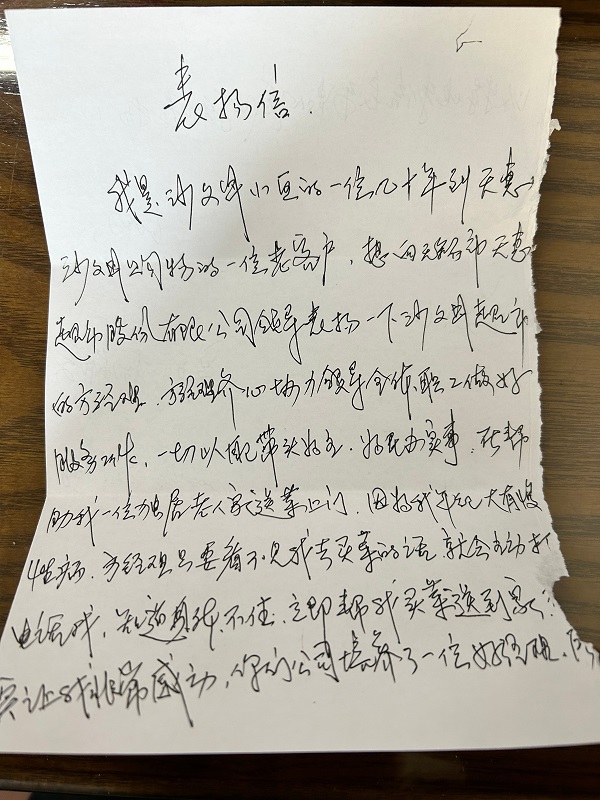 表扬信.
我是沙文井小区的一位几十年到天惠
沙文井公司的一位老客户，想向天惠
超市股份有限公司领导表扬一下沙文井超市
的方经理.方经理齐心协力领导全体职工做好
服务工作，一切以自己带头为主.为民办实事.在帮
助我一位独居老人家送菜上门.因为我年纪大有慢
性病.方经理只要看不见我去买菜的话就会主动打
电话我，知道身体不佳.立即帮我买菜送到家
真让我非常感动，你们公司培养了一位好经理.